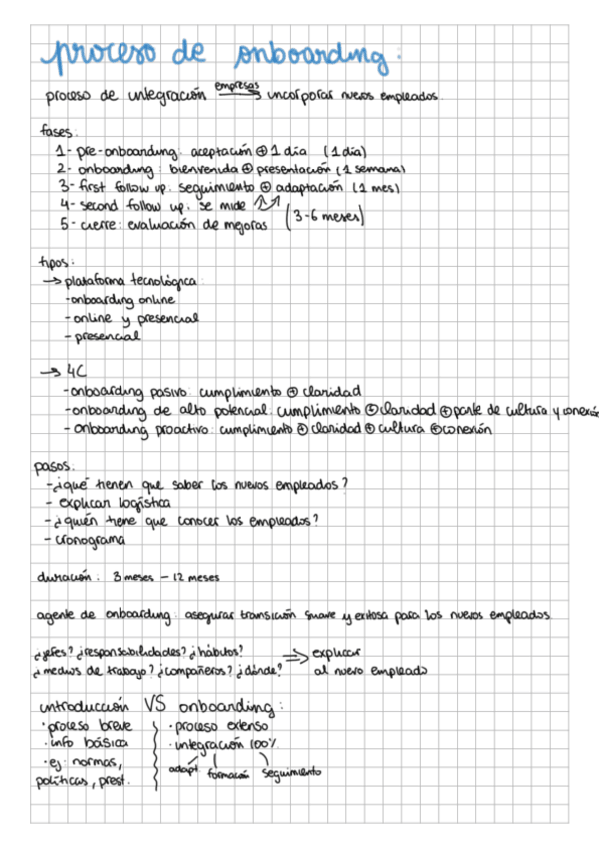 proceso de onboarding:
proceso de integración empresas → incorporar nuevos empleados.
fases:
1- pre-onboarding: aceptación ⊕ 1 día (1 día)
2- onboarding: bienvenida ⊕ presentación (1 semana)
3- first follow up: seguimiento ⊕ adaptación (1 mes)
4- second follow up: se mide
5- cierre: evaluación de mejoras (3-6 meses)
tipos:
→ plataforma tecnológica:
-onboarding online
-online y presencial
-presencial
→ 4C
-onboarding pasivo: cumplimiento ⊕ claridad
-onboarding de alto potencial: cumplimiento ⊕ claridad ⊕ parte de cultura y conexión
-onboarding proactivo: cumplimiento ⊕ claridad ⊕ cultura ⊕ conexión
pasos:
-¿qué tienen que saber los nuevos empleados?
- explicar logística
-¿quién tiene que conocer los empleados?
- cronograma
duración: 3 meses - 12 meses
agente de onboarding: asegurar transición suave y exitosa para los nuevos empleados
¿jefes? ¿responsabilidades? ¿hábitos? ⇒ explicar
¿medios de trabajo? ¿compañeros? ¿dónde? al nuevo empleado
introducción VS onboarding:
· proceso breve · proceso extenso
· info básica · integración 100%
· ej: normas, adapt. formación seguimiento
políticas, prest.